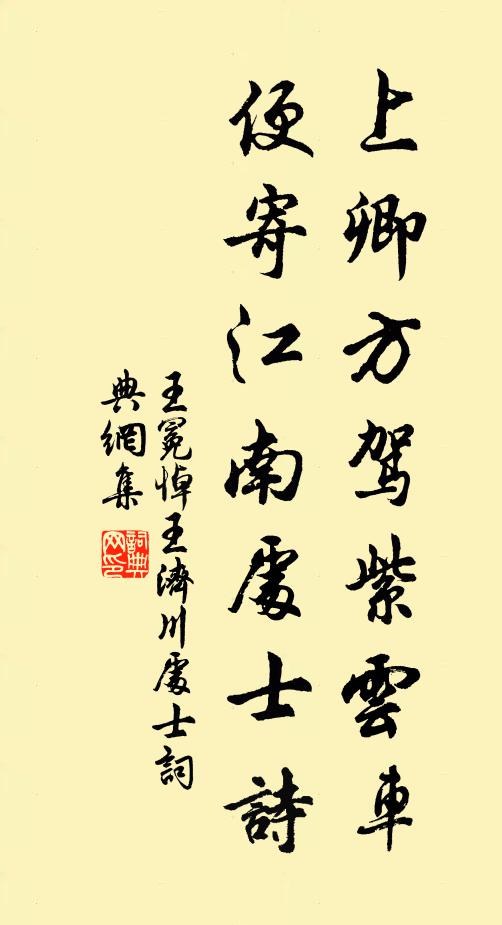 上卿方駕紫雲車
便寄江南處士詩
王冕悼王濟川處士詞
典網集
詞典
网印